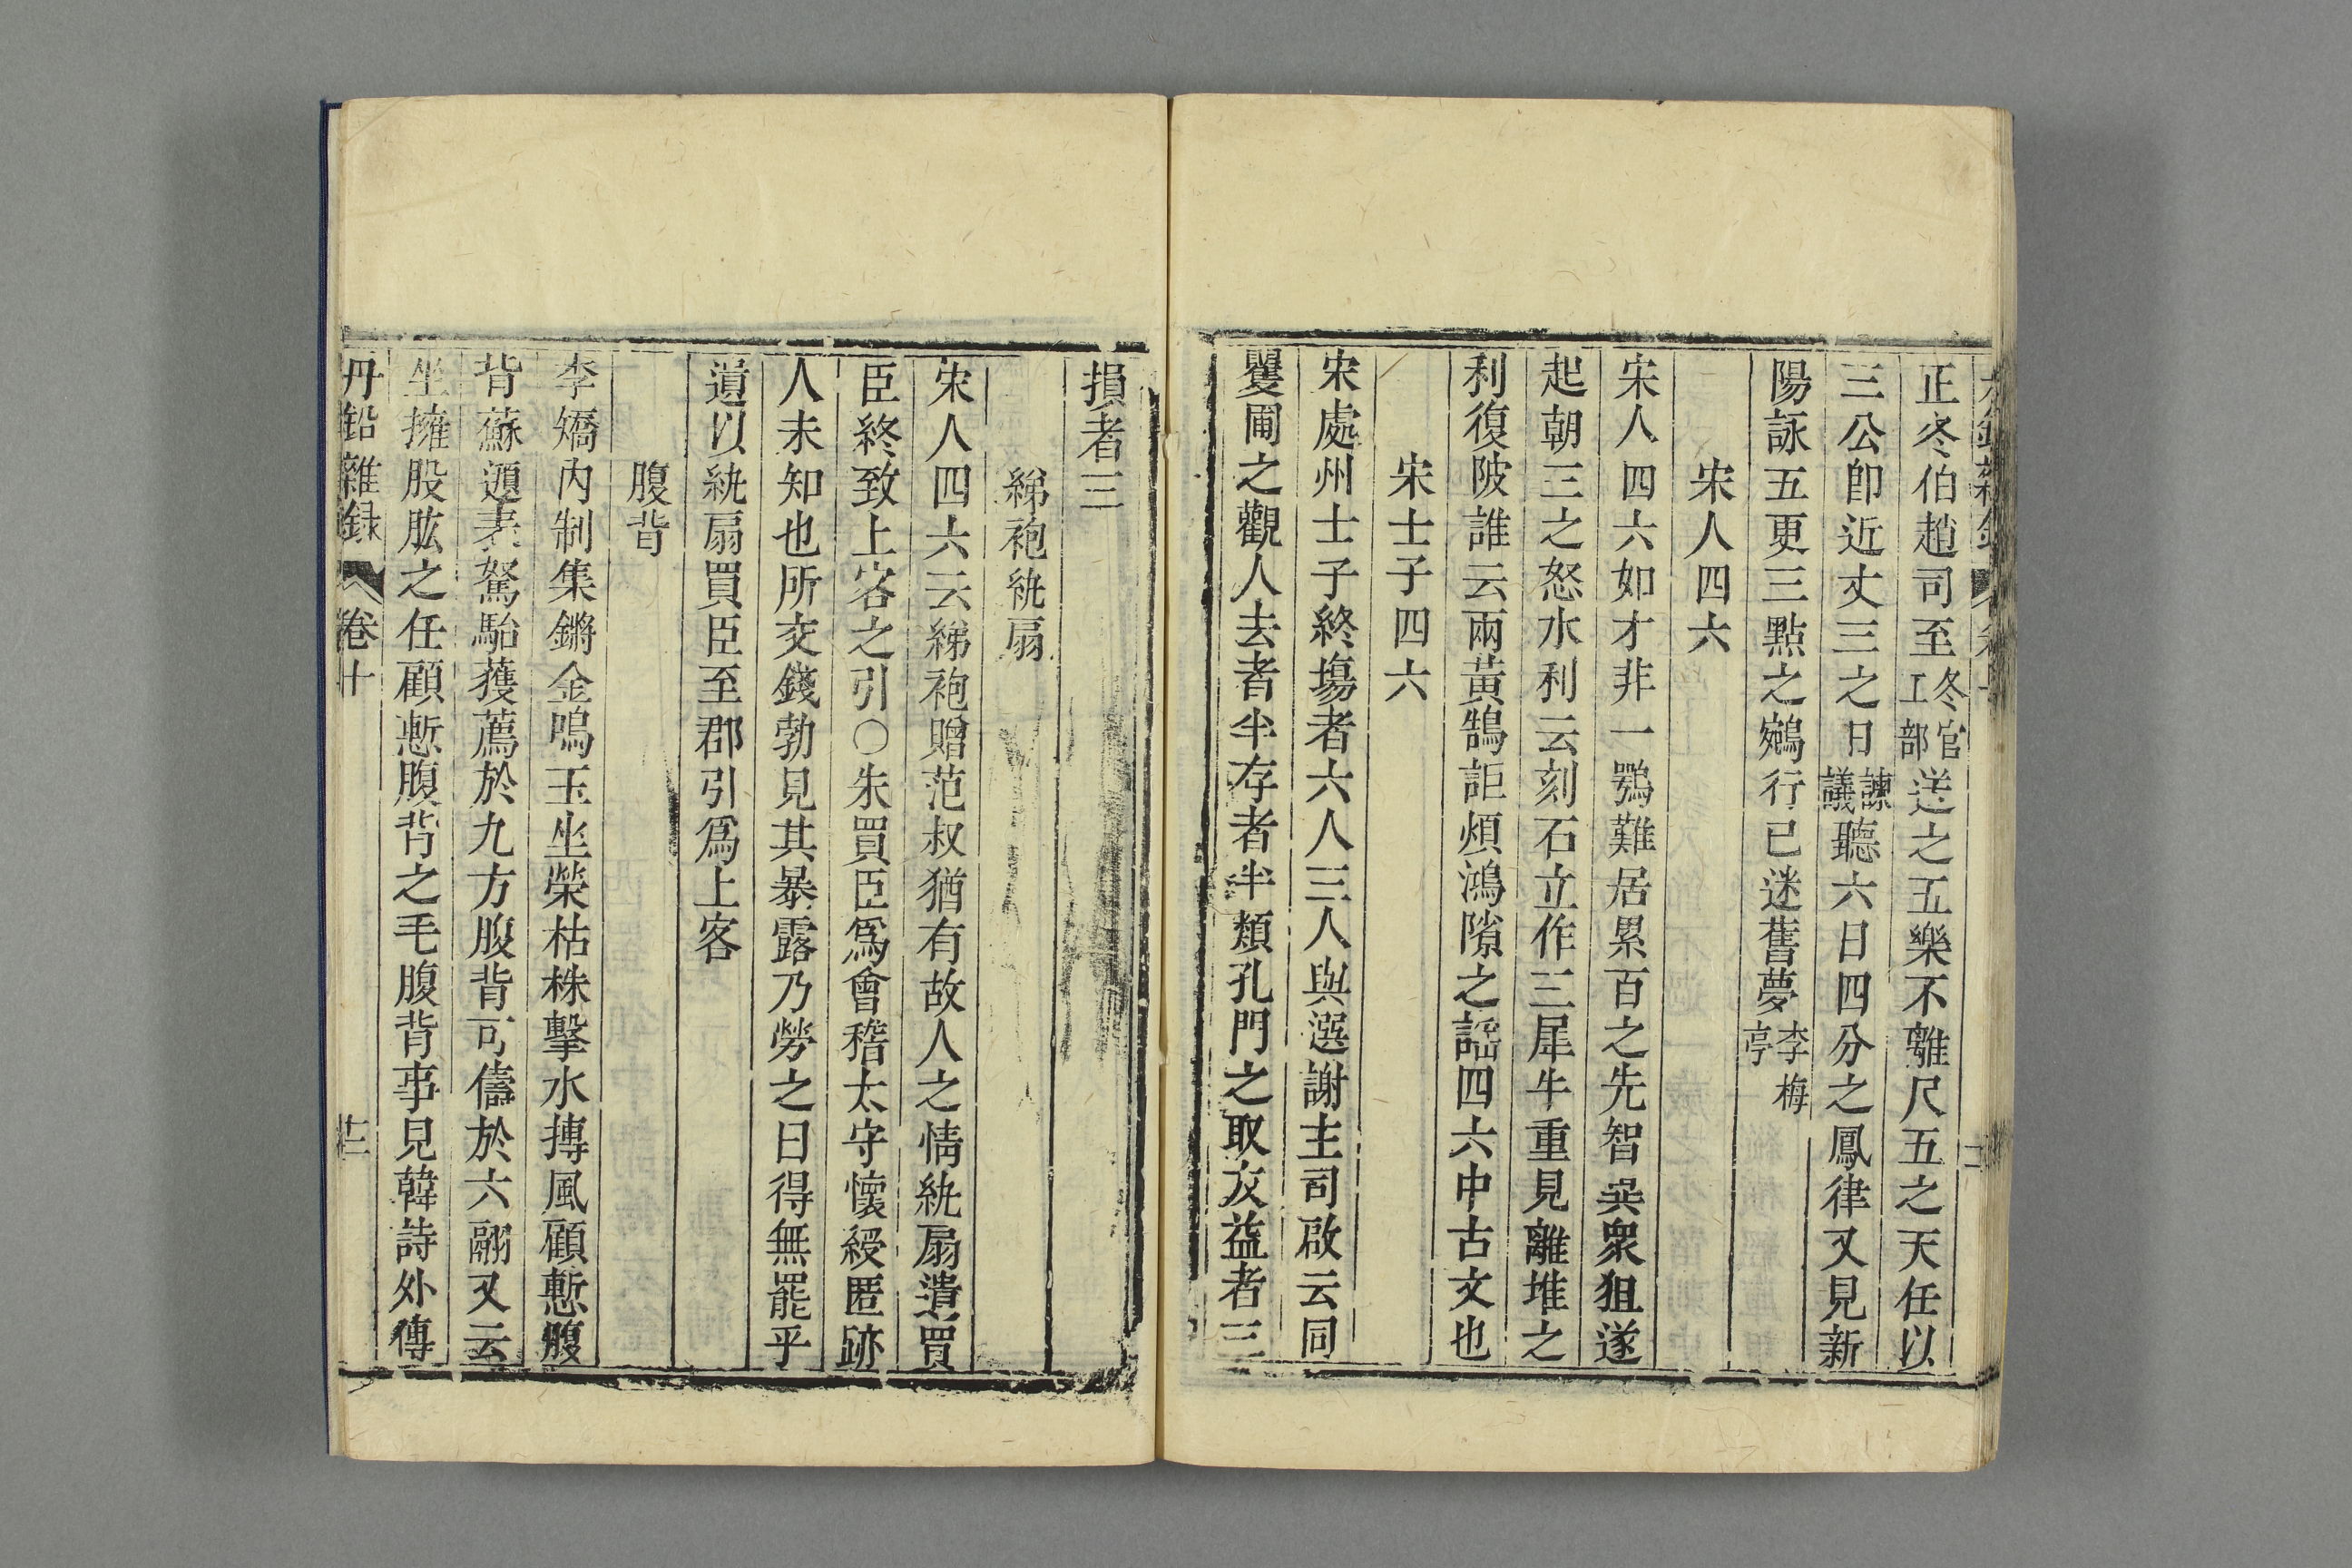 正冬伯趙司至冬官工部送之五樂不離尺五之天任以
三公卽近丈三之日諫議聽六日四分之鳳律又見新
陽詠五更三點之鵷行已迷舊夢李梅亭
宋人四六
宋人四六如才非一鶚難居累百之先智異衆狙遂
起朝三之怒水利云刻石立作三犀牛重見離堆之
利復陂誰云兩黃鵠詎煩鴻隙之謠四六中古文也
宋士子四六
宋處州士子終塲者六人三人與選謝主司啟云同
矍圃之觀人去者半存者半類孔門之取友益者三
損者三
綈袍紈扇
宋人四六云綈袍贈范叔猶有故人之情紈扇遺買
臣終致上客之引○朱買臣爲會稽太守懷綬匿跡
人未知也所交錢勃見其暴露乃勞之曰得無罷乎
遺以紈扇買臣至郡引爲上客
腹背
李嬌內制集鏘金鳴玉坐榮枯株擊水摶風顧慙腹
背蘇頲表駑駘獲薦於九方腹背可儔於六翮又云
坐擁股肱之任顧慙腹背之毛腹背事見韓詩外傳
丹鉛雜録 卷十 十二